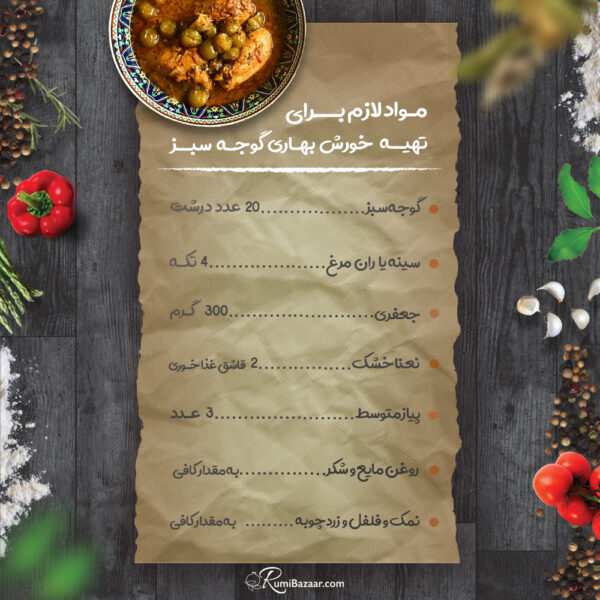 مواد لازم برای
تهیه خورش بهاری گوجه سبز
گوجه سبز..................20 عدد درشت
سینه یا ران مرغ....................4 تکه
جعفری.........................300 گرم
نعنا خشک................2 قاشق غذاخوری
پیاز متوسط........................3 عدد
روغن مایع و شکر...............به مقدار کافی
نمک و فلفل و زردچوبه......... به مقدار کافی
RumiBazaar.com